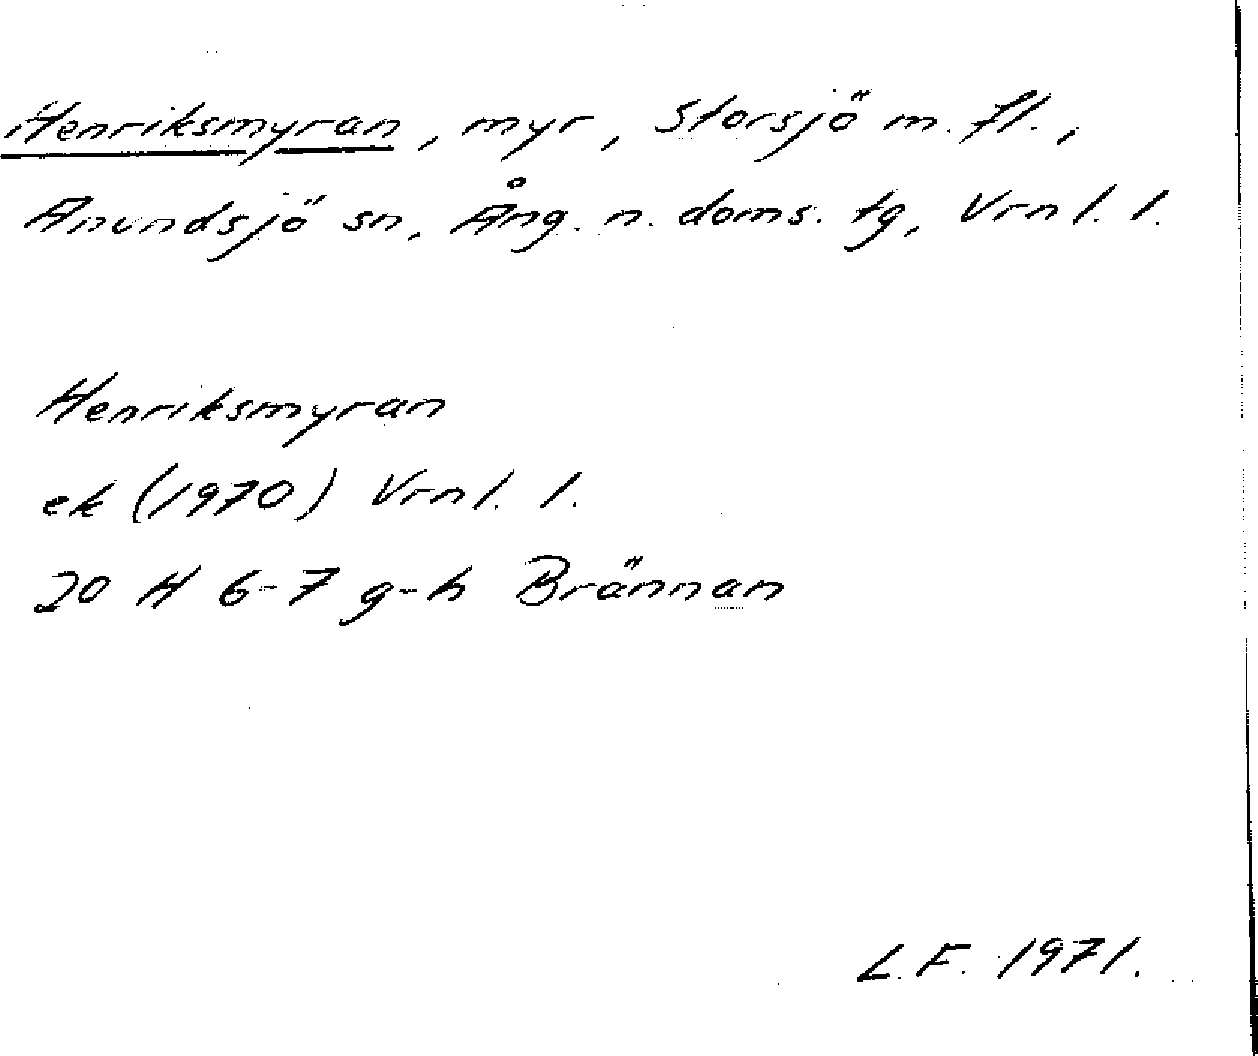 Henriksmyran, myr, Storsjö m. fl.,
Anundsjö sn, Ång. n. doms. tg, Vrnl. l.
Henriksmyran
ek (1970) Vrnl. l.
20 H 6-7 g-h Brännan
L. F. 1971.